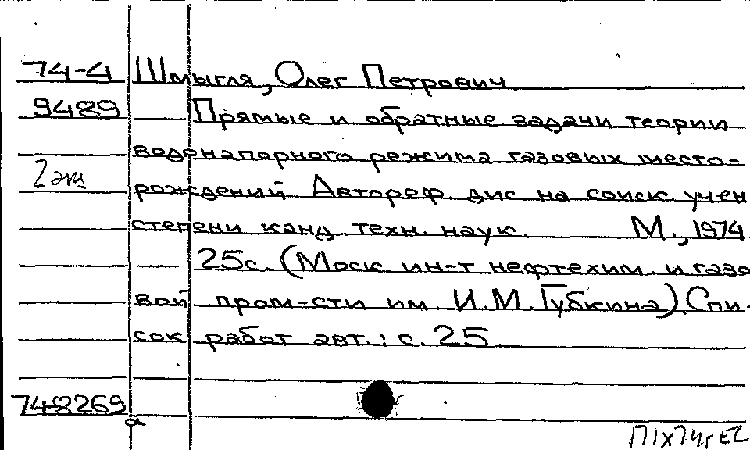 74-4 Шмыгля, Олег Петрович
9489 Прямые и обратные задачи теории
водонапорного режима газовых место-
2 экз
рождений Автореф. дис на соиск учен
степени канд техн. наук. М., 1974
25с. (Моск ин-т нефтехим. и газо
вой пром-сти им И.М. Губкина) Спи-
сок работ авт.: с. 25
74-8269